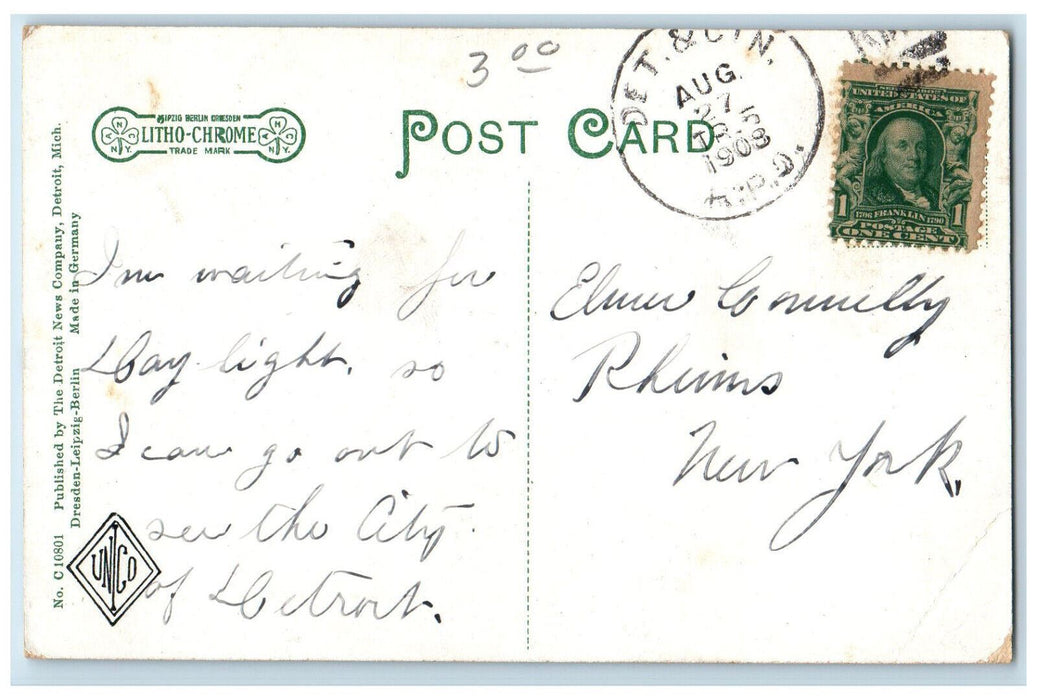 3 00
LEIPZIG BERLIN DRESDEN
LITHO-CHROME
TRADE MARK
N.Y.
N.Y.
POST CARD
DET. & CIN.
AUG.
27
1908
R.P.O.
UNITED STATES OF
AMERICA
1 1706 FRANKLIN 1790 1
POSTAGE
ONE CENT
No. C 10801 Published by The Detroit News Company, Detroit, Mich.
Dresden-Leipzig-Berlin Made in Germany
I'm waiting for
Day light. so
I can go out to
see the City
of Detroit.
UNCO
Elmer Connelly
Rheims
New York.